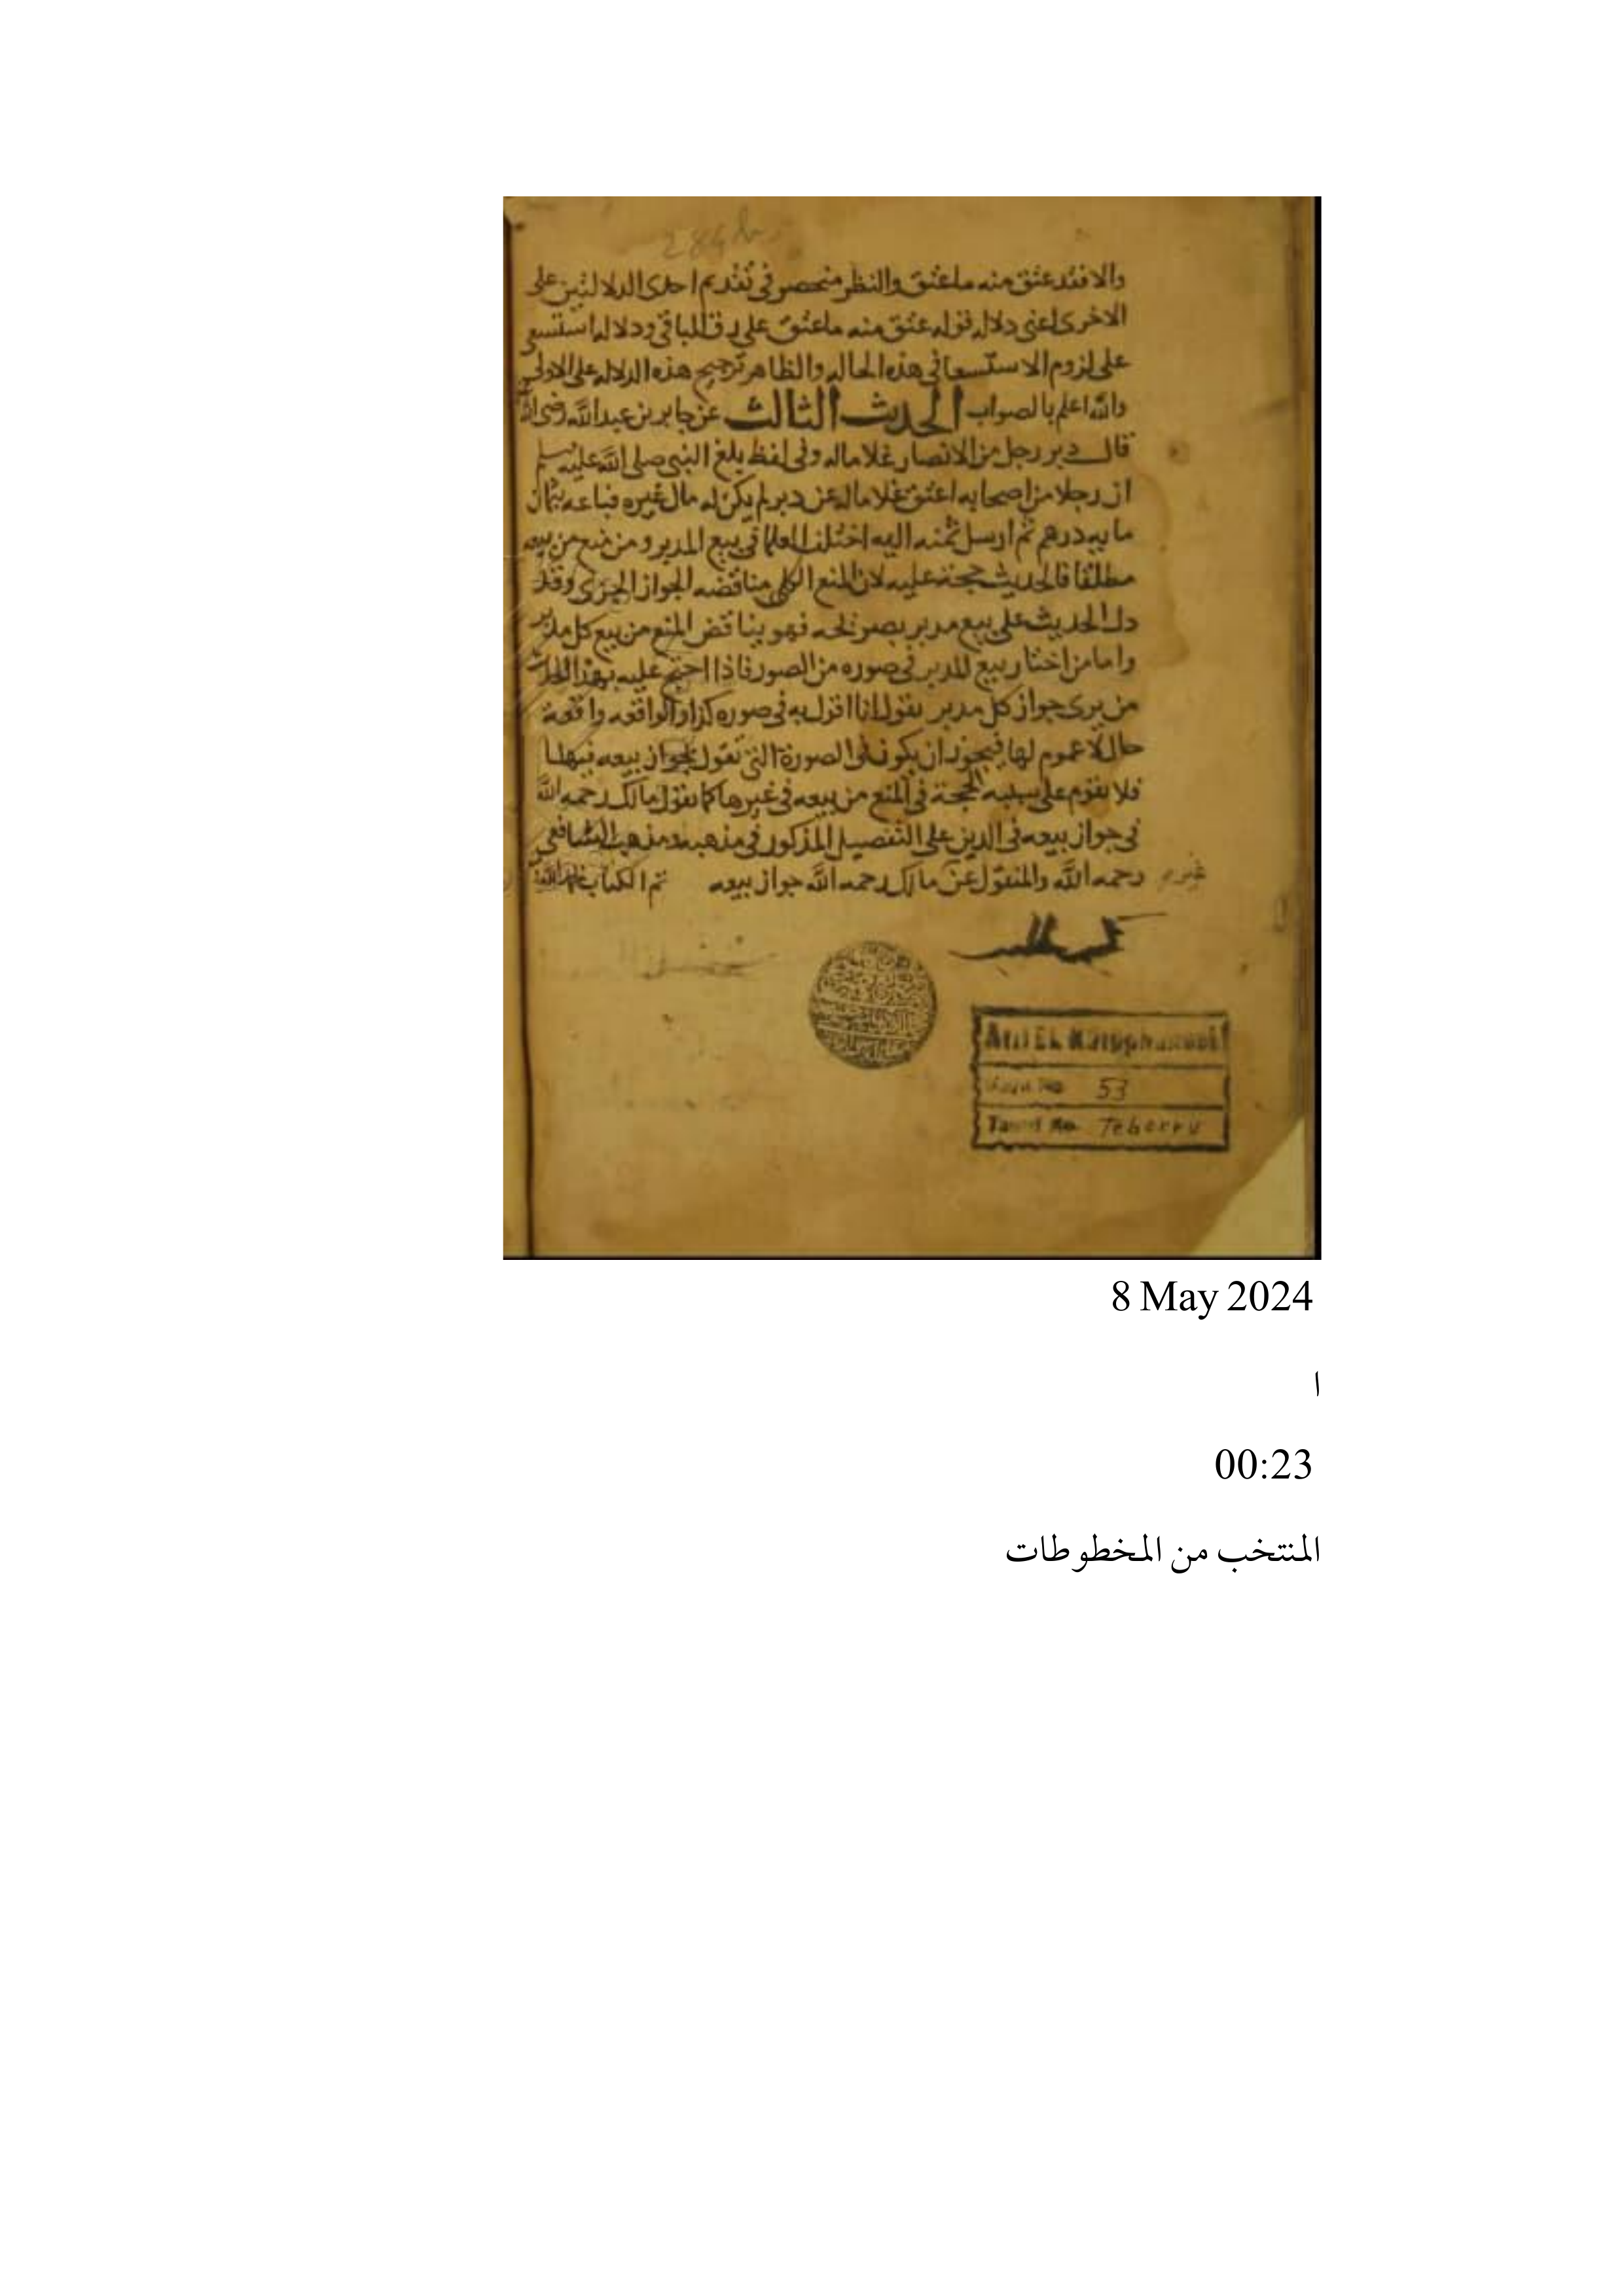 284 b
والا فقد عتق منه ما عتق والنظر منحصر فى تقديم احدى الدلالتين على
الاخرى اعنى دلاله قوله عتق منه ما عتق على رق الباقى ودلاله استسعى
على لزوم الاستسعا فى هذه الحاله والظاهر ترجيح هذه الدلاله على الاولى
والله اعلم بالصواب الحديث الثالث عن جابر بن عبد الله رضى الله
قال دبر رجل من الانصار غلاما له وفى لفظ بلغ النبى صلى الله عليه وسلم
ان رجلا من اصحابه اعتق غلاما له عن دبر لم يكن له مال غيره فباعه بثمان
مايه درهم ثم ارسل ثمنه اليه اختلف العلما فى بيع المدبر ومن منع من بيعه
مطلقا فالحديث حجة عليه لان المنع الكلى مناقضه الجواز الجزى وقد
دل الحديث على بيع مدبر بصر فهو يناقض المنع من بيع كل مدبر
واما من اختار بيع المدبر فى صوره من الصور فاذا احتج عليه بهذا الحديث
من يرى جواز كل مدبر يقول انا اقول به فى صوره كذا والواقعه واقعة
حال لا عموم لها فيجوز ان يكون فى الصورة التى نقول بجواز بيعه فيها
فلا تقوم على الحجة فى المنع من بيعه فى غيرها كما يقول مالك رحمه الله
فى جواز بيعه فى الدين على التفصيل المذكور فى مذهبه ومذهب الشافعى
رحمه الله والمنقول عن مالك رحمه الله جواز بيعه تم الكتاب
53
Teberru
8 May 2024
ا
00:23
المنتخب من المخطوطات